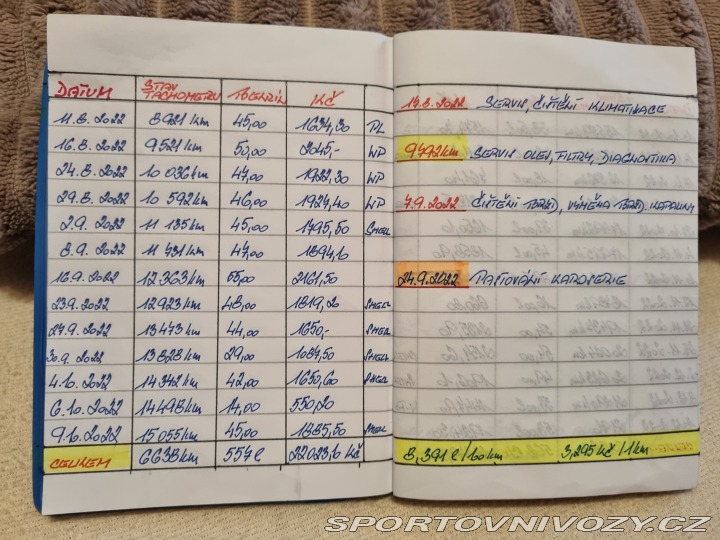 DATUM STAV TACHOMETRU BENZIN KČ
11.8.2022 8921 km 45,00 1634,30 PL
16.8.2022 9521 km 50,00 2045,- WP
24.8.2022 10 036 km 47,00 1922,30 WP
29.8.2022 10 592 km 46,00 1927,40 WP
2.9.2022 11 135 km 45,00 1795,50 SHELL
8.9.2022 11 731 km 47,00 1894,10
16.9.2022 12 363 km 55,00 2161,50
23.9.2022 12 923 km 48,00 1819,20 SHELL
27.9.2022 13 473 km 44,00 1650,- SHELL
30.9.2022 13 828 km 29,00 1087,50 SHELL
4.10.2022 14 342 km 42,00 1650,60 SHELL
6.10.2022 14 498 km 14,00 550,20
9.10.2022 15 055 km 45,00 1885,50 SHELL
CELKEM 6638 km 557 l 22023,10 Kč
14.8.2022 SERVIS, ČIŠTĚNÍ KLIMATIZACE
9772 km SERVIS OLEJ, FILTRY, DIAGNOSTIKA
7.9.2022 ČIŠTĚNÍ BRZD, VÝMĚNA BRZD. KAPALINY
24.9.2022 PASTOVÁNÍ KAROSERIE
8,391 l/100 km 3,295 Kč/1 km
SPORTOVNIVOZY.CZ